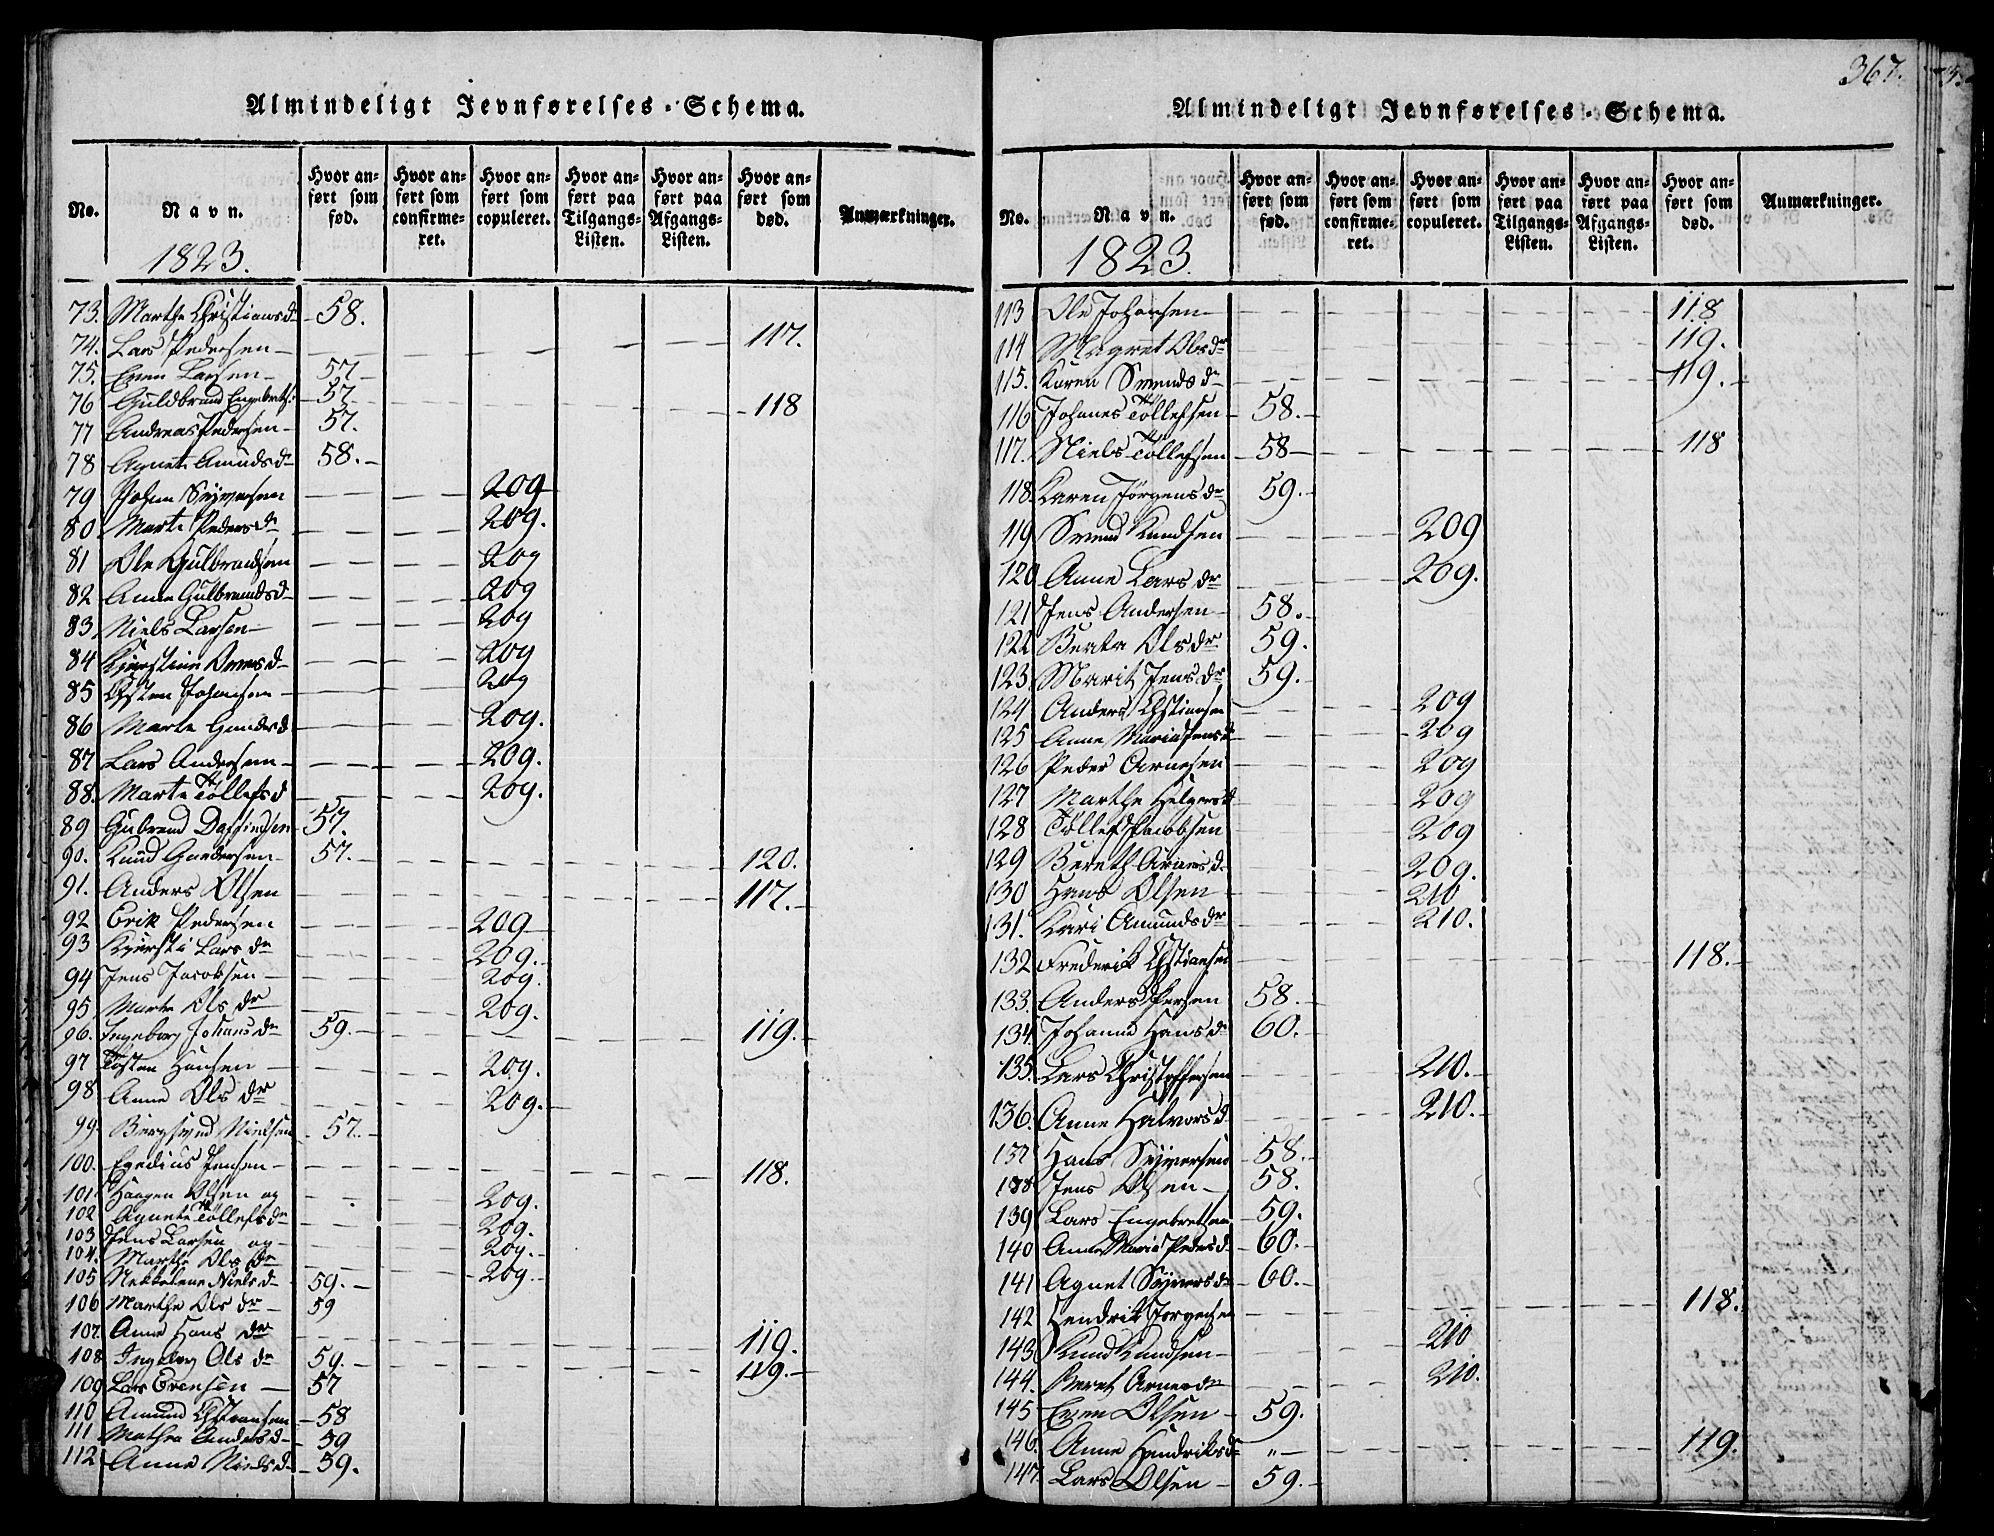 367.
Almindeligt Jevnførelses-Schema.
No.
Navn.
Hvor anført som fød.
Hvor anført som confirmeret.
Hvor anført som copuleret.
Hvor anført paa Tilgangs-Listen.
Hvor anført paa Afgangs-Listen.
Hvor anført som død.
Anmærkninger.
1823.
73. Marthe Christiansd 58.
74. Lars Pedersen 117.
75. Even Larsen 57
76 Guldbrand Engebrets: 57 118
77 Andreas Pedersen 57.
78 Agnete Amundsd 58.
79 Johan Syversen 209
80 Marte Pedersd 209.
81 Ole Gulbrandsen 209
82 Anne Gulbrandsd 209
83. Niels Larsen 209
84 Kjerstine Svensd 209
85 Østen Johansen 209
86 Marte Gundersd 209.
87 Lars Andersen 209.
88. Marte Tøllefsd 209.
89 Gulbrand Dagfindsen 57.
90. Knud Gundersen 57. 120.
91. Anders Olsen 117.
92 Erik Pedersen 209
93 Kjersti Larsdr 209.
94 Jens Jacobsen 209.
95 Marte Olsdr 209.
96. Ingeborg Johansdr 59. 119.
97 Tosten Hansen 209.
98 Anne Olsdr 209.
99 Bergsvend Nielsen 57.
100. Egedius Jensen 118.
101. Haagen Olsen og 209.
102 Agnete Tøllefsdr 209.
103 Jens Larsen og 209.
104. Marthe Olsdr 209.
105 Nielsd 59.
106 Marthe Olsdr 59
107. Anne Hansdr 119.
108 Ingeborg Olsdr 59. 119.
109 Lars Evensen 57
110 Amund Chstiansen 58
111 Mathea Andersd 59
112 Anne Nielsd 59.
Almindeligt Jevnførelses-Schema.
No.
Navn.
Hvor anført som fød.
Hvor anført som confirmeret.
Hvor anført som copuleret.
Hvor anført paa Tilgangs-Listen.
Hvor anført paa Afgangs-Listen.
Hvor anført som død.
Anmærkninger.
1823.
113 Ole Johansen 118
114 Magret Olsdr 119.
115. Karen Svendsdr 119.
116 Johanes Tøllefsen 58.
117. Niels Tøllefsen 58 118
118. Karen Jørgensdr 59.
119 Svend Knudsen 209
120 Anne Larsdr 209.
121 Jens Andersen 58.
122 Beate Olsdr 59.
123. Marit Jensdr 59.
124 Anders Chstiansen 209
125 Anne Maria Jensd 209
126 Peder Arnesen 209
127 Marthe Helgersd 209
128 Tøllef Jacobsen 209
129 Bereth Arnesd 209.
130 Hans Olsen 210
131. Kari Amundsdr 210.
132 Frederik Chstiansen 118.
133. Anders Persen 58.
134. Johanne Hansdr 60.
135. Lars Christoffersen 210.
136. Anne Halvorsd 210.
137 Hans Syversen 58.
138 Jens Olsen 58.
139 Lars Engebretsen 59.
140 Anne Maria Pedersd 60.
141 Agnet Syversdr 60.
142 Hendrik Jørgensen 118.
143 Knud Knudsen 210
144. Beret Arnesdr 210.
145 Even Olsen 59.
146. Anne Hendriksdr " 119.
147. Lars Olsen 59.